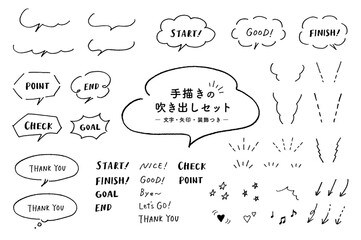 START!
GOOD!
FINISH!
POINT
END
手描きの
吹き出しセット
― 文字・矢印・装飾つき ―
CHECK
GOAL
THANK YOU
THANK YOU
START!
FINISH!
GOAL
END
NICE!
GOOD!
Bye~
Let's GO!
THANK YOU
CHECK
POINT